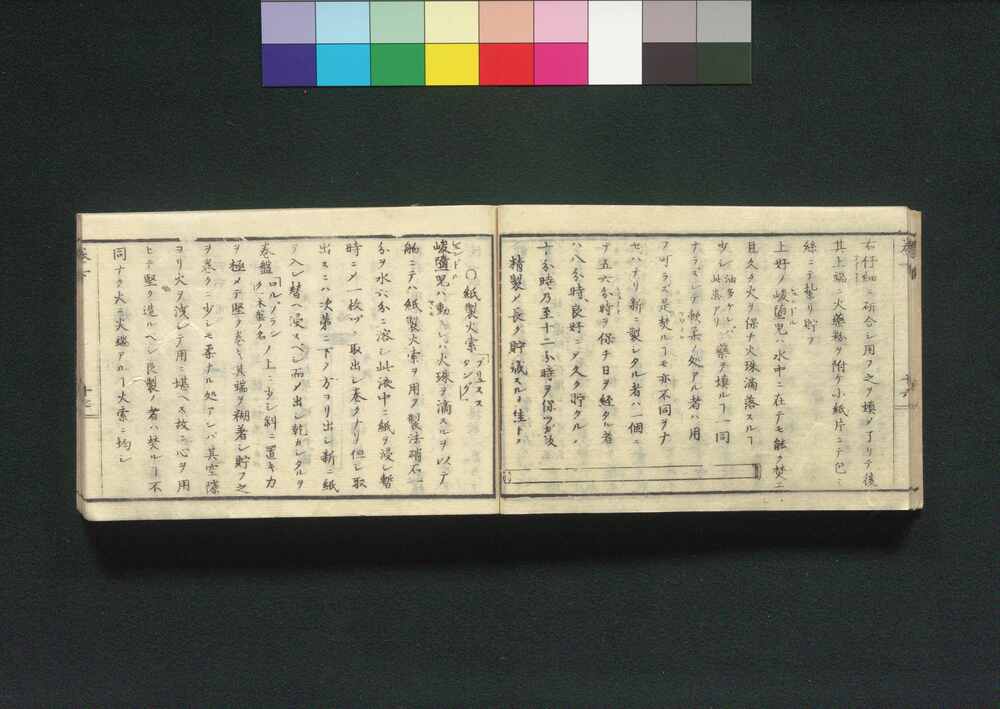 右仔細ニ研合シ用フ之ヲ填メ了リテ後
其上端ニ火藥粉ヲ附ケ小紙片ニテ包ミ
絲ニテ紮リ貯フ
上好ノ峻噇児ハ水中ニ在テモ能ク焚エ
且久ク火ヲ保チ火珠滴落スルヿ
少シ 油多ケレバ此患アリ 藥ヲ填ルヿ一同
ナラズシテ軟柔ノ処アル者ハ用
フ可ラズ是焚ルヿモ亦不同ヲナ
セハナリ新ニ製シタル者ハ一個ニ
テ五六分時ヲ保チ日ヲ経タル者
ハ八分時良好ニメ久ク貯クル
十分時乃至十二分時ヲ保ツ故
精製メ長ク貯蔵スルヲ佳トス
○紙製火索 「プリュスス タング」
峻噇児ハ動モスレハ火珠ヲ滴スルヲ以テ
舶ニテハ紙製火索ヲ用フ製法硝石一
分ヲ水六分ニ溶シ此液中ニ紙ヲ浸シ暫
時ニメ一枚ヅヽ取出シ巻クナリ但シ取
出スニハ次第ニ下ノ方ヨリ出シ新ニ紙
ヲ入レ替ヘ浸スベシ而メ出シ乾カシタルヲ
巻盤 「ロルプランク」木盤ノ名 ノ上ニ少シ斜ニ置キ力
ヲ極メテ堅ク巻キ其端ヲ糊著シ貯フ之
ヲ巻クニ少シモ柔ナル処アレバ其空隙
ヨリ火ヲ洩シテ用ニ堪ヘス故ニ心ヲ用
ヒテ堅ク造ルヘシ良製ノ者ハ焚ルヿ不
同ナク火ニ火燼アルヿ火索ニ均シ